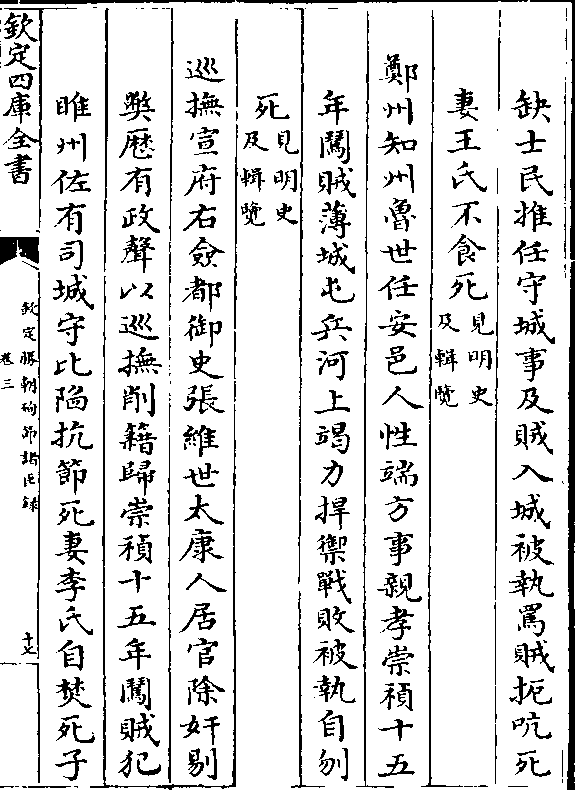 缺士民推任守城事及賊入城被執罵賊扼吭死
妻王氏不食死見明史及輯覽
鄭州知州魯世任安邑人性端方事親孝崇禎十五
年闖賊薄城屯兵河上竭力捍禦戰敗被執自刎
死見明史及輯覽
巡撫宣府右僉都御史張維世太康人居官除奸剔
弊歷有政聲以巡撫削籍歸崇禎十五年闖賊犯
睢州佐有司城守比陷抗節死妻李氏自焚死子
欽定四庫全書
欽定勝朝殉節諸臣錄
卷三